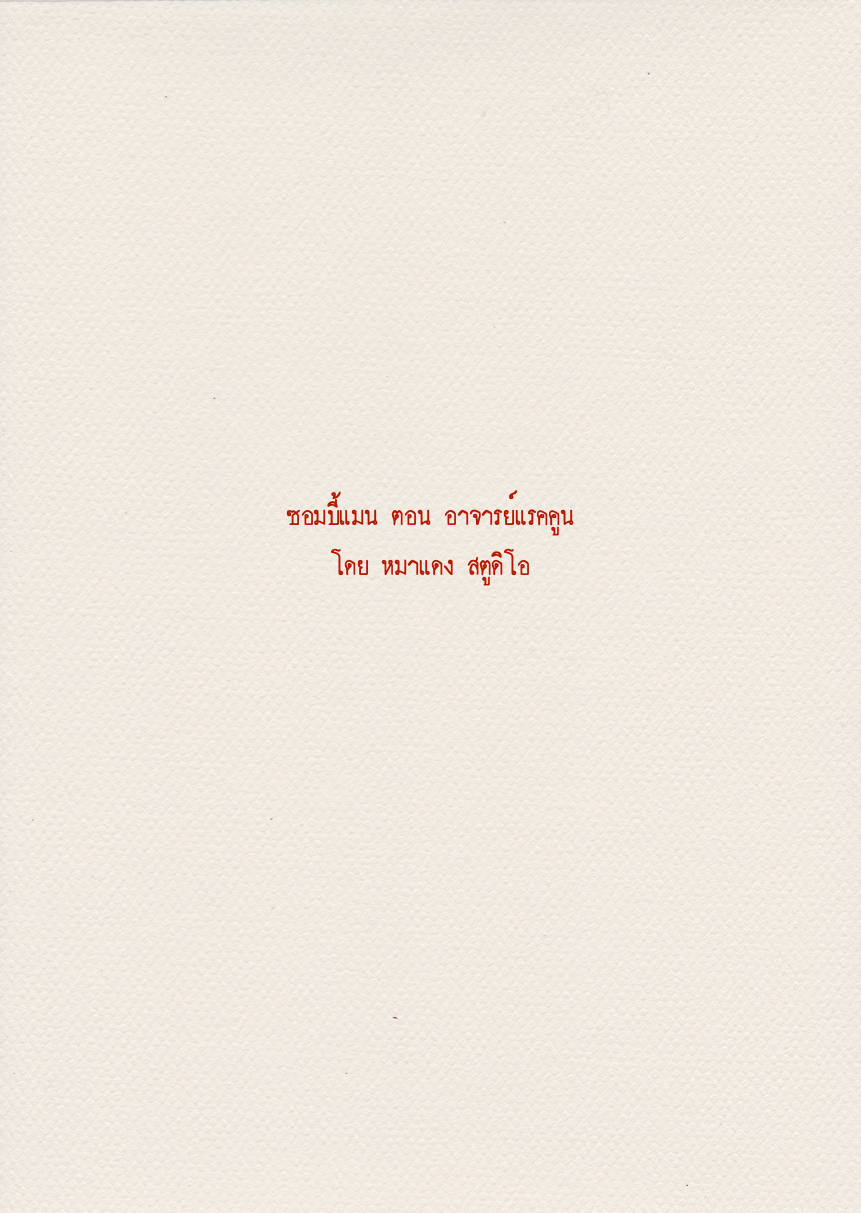 ซอมบี้แมน ตอน อาจารย์แรคคูน
โดย หมาแดง สตูดิโอ